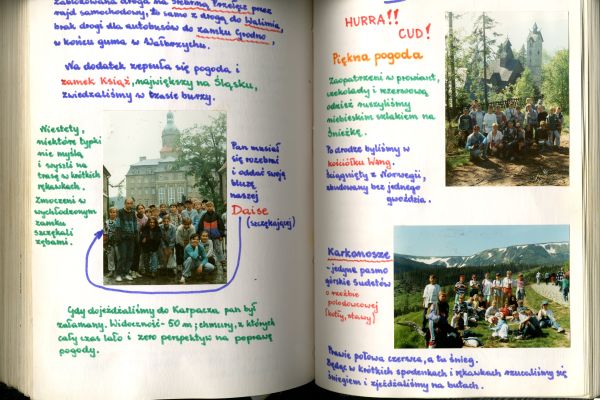 zablokowana droga na Srebrną Przełęcz przez
rajd samochodowy, to samo z drogą do Walimia,
brak drogi dla autobusów do zamku Grodno,
w końcu guma w Wałbrzychu.
Na dodatek zepsuła się pogoda i
zamek Książ, największy na Śląsku,
zwiedzaliśmy w czasie burzy.
Niestety,
niektóre typki
nie myślą
i wyszli na
trasę w krótkich
rękawkach.
Zmoczeni w
wychłodzonym
zamku
szczękali
zębami.
Pan musiał
się rozebrać
i oddać swoją
bluzę
naszej
Daise
(szczękającej)
Gdy dojeżdżaliśmy do Karpacza pan był
załamany. Widoczność - 50 m; chmury, z których
cały czas lało i zero perspektyw na poprawę
pogody.
HURRA!!
CUD!
Piękna pogoda
Zaopatrzeni w prowiant,
czekolady i rezerwową
odzież ruszyliśmy
niebieskim szlakiem na
Śnieżkę.
Po drodze byliśmy w
kościółku Wang,
ściągnięty z Norwegii,
zbudowany bez jednego
gwoździa.
Karkonosze
- jedyne pasmo
górskie Sudetów
o rzeźbie
polodowcowej
(kotły, stawy)
Prawie połowa czerwca, a tu śnieg.
Będąc w krótkich spodenkach i rękawkach rzucaliśmy się
śniegiem i zjeżdżaliśmy na butach.